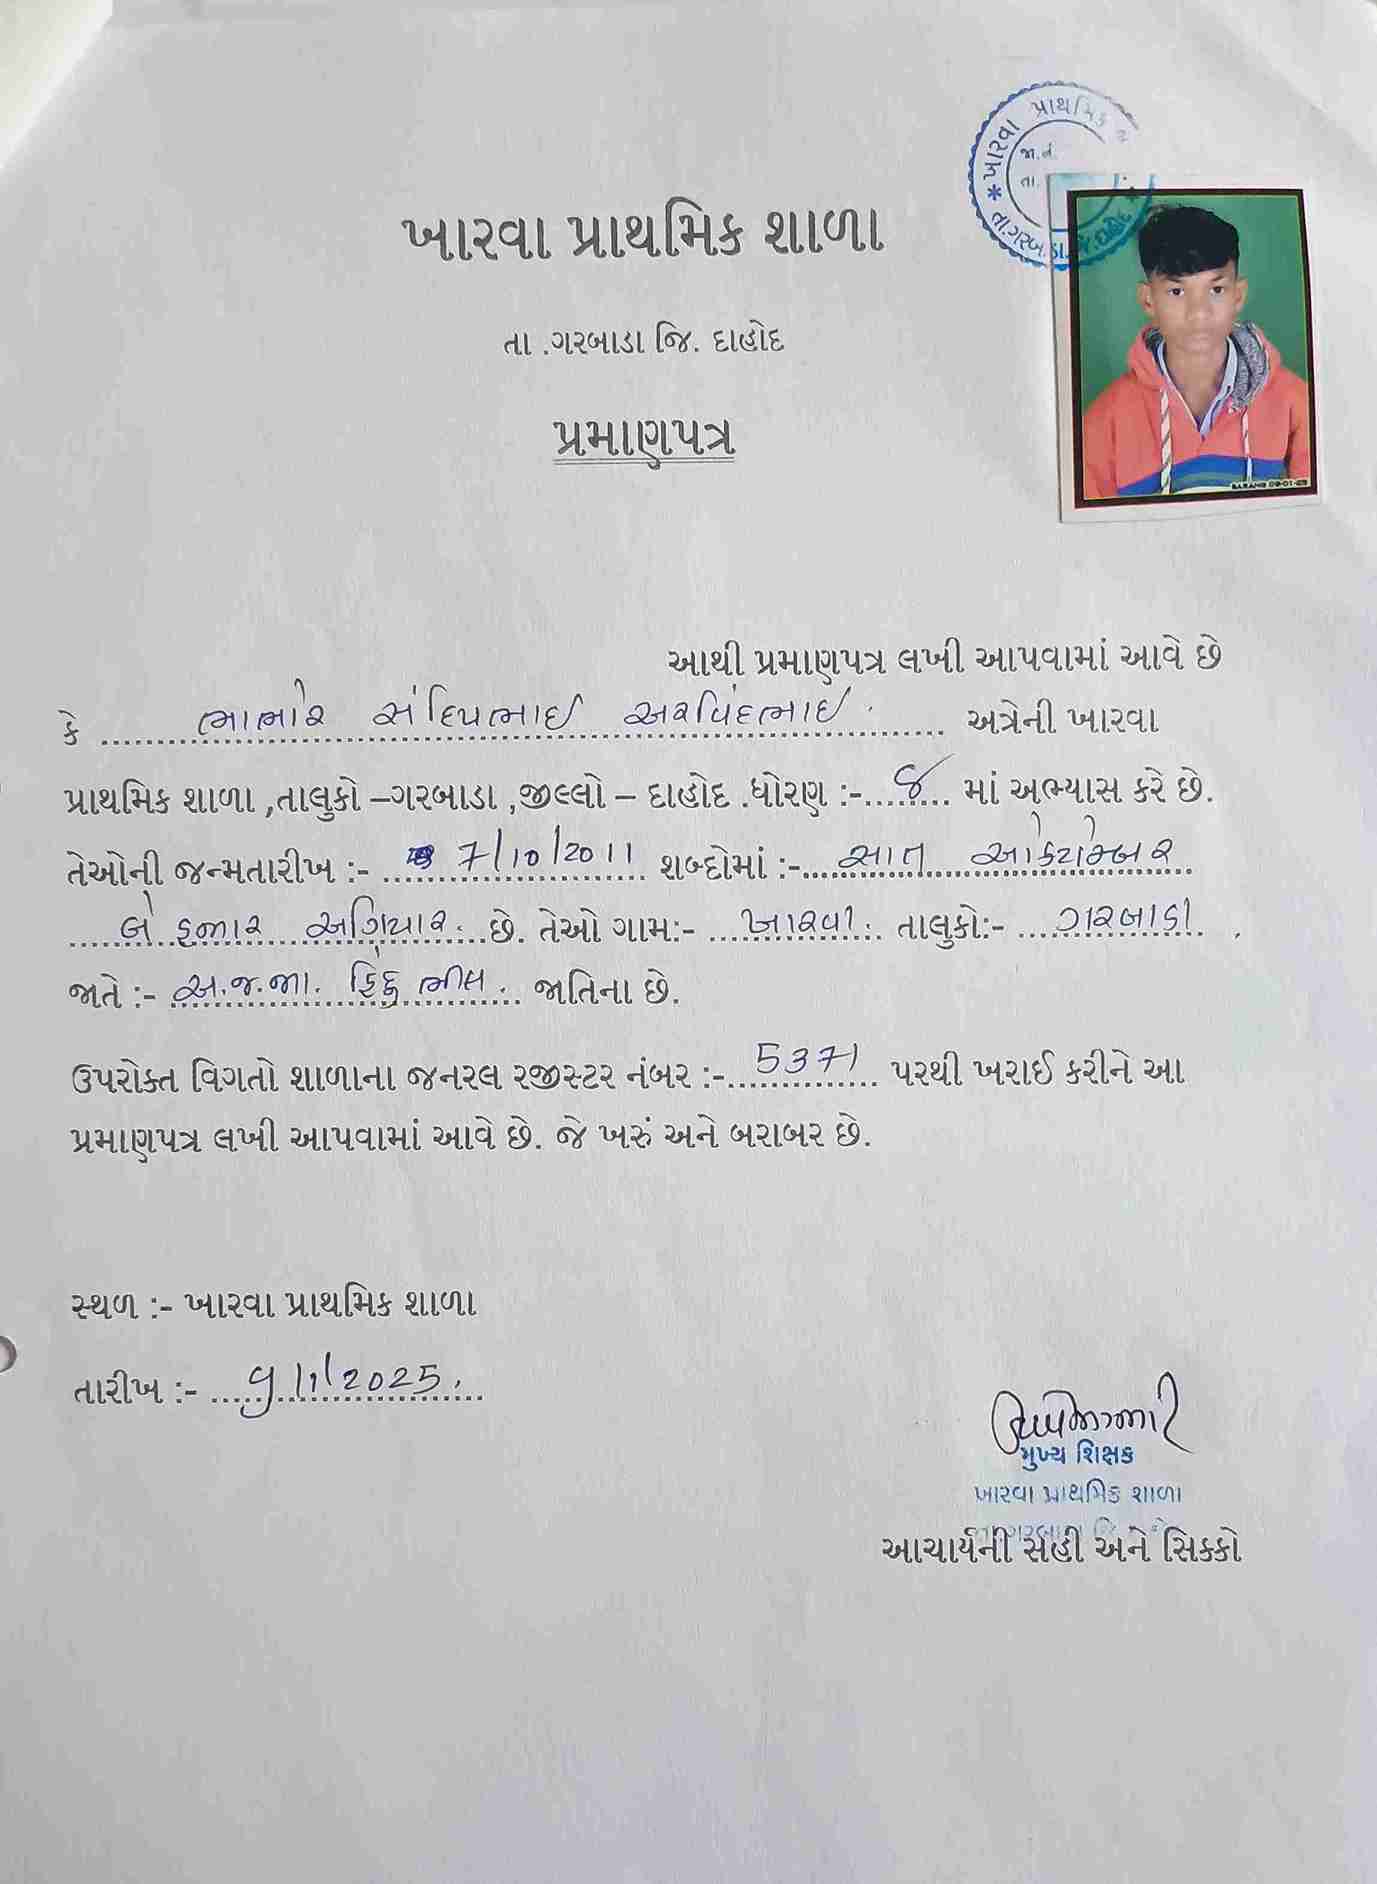 ખારવા પ્રાથમિક
જા.નં.
તા.
તા.ગરબાડા.જિ.દાહોદ
ખારવા પ્રાથમિક શાળા
તા .ગરબાડા જિ. દાહોદ
પ્રમાણપત્ર
આથી પ્રમાણપત્ર લખી આપવામાં આવે છે
કે ભાભોર સંદિપભાઈ અરવિંદભાઈ. અત્રેની ખારવા
પ્રાથમિક શાળા ,તાલુકો –ગરબાડા ,જીલ્લો – દાહોદ .ધોરણ :- ૪ માં અભ્યાસ કરે છે.
તેઓની જન્મતારીખ :- 7/10/2011 શબ્દોમાં :- સાત ઓકટોમ્બર
બે હજાર અગિયાર. છે. તેઓ ગામ:- ખારવા. તાલુકો:- ગરબાડા.
જાતે :- અ.જ.જા. હિંદુ ભીલ. જાતિના છે.
ઉપરોક્ત વિગતો શાળાના જનરલ રજીસ્ટર નંબર :- 5371 પરથી ખરાઈ કરીને આ
પ્રમાણપત્ર લખી આપવામાં આવે છે. જે ખરું અને બરાબર છે.
સ્થળ :- ખારવા પ્રાથમિક શાળા
તારીખ :- 9/1/2025.
મુખ્ય શિક્ષક
ખારવા પ્રાથમિક શાળા
આચાર્યની સહી અને સિક્કો